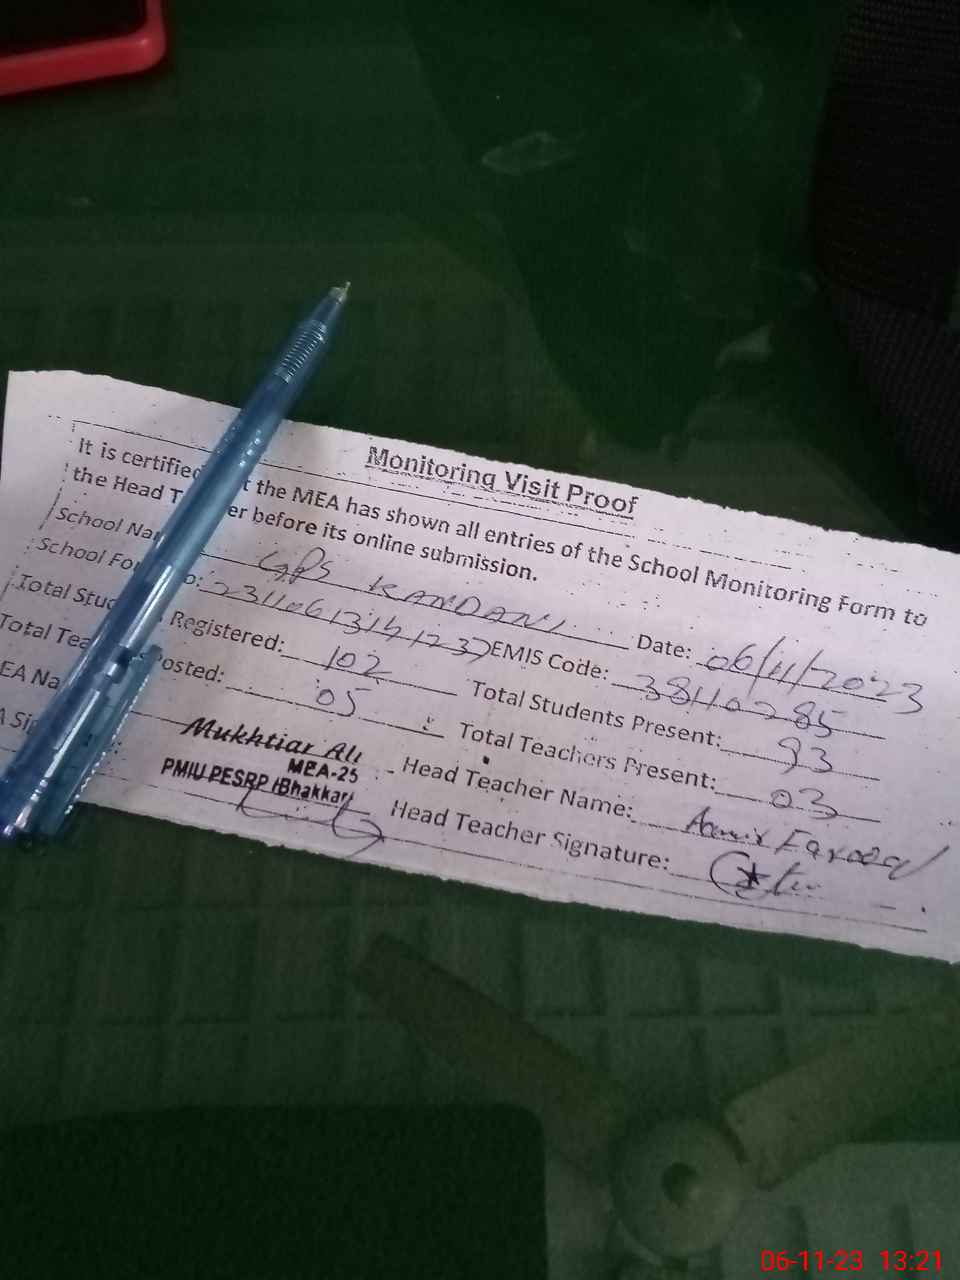 Monitoring Visit Proof
It is certified t the MEA has shown all entries of the School Monitoring Form to
the Head T er before its online submission.
School Nam GPS KANDANI Date: 06/11/2023
School Fo o: EMIS Code: 38110285
Total Stud Registered: 102 Total Students Present: 93
Total Tea Posted: 05 Total Teachers Present: 03
EA Na Mukhtiar Ali Head Teacher Name: Aamir Farooq
MEA-25
PMIU PESRP (Bhakkar)
A Sig Head Teacher Signature:
06-11-23 13:21